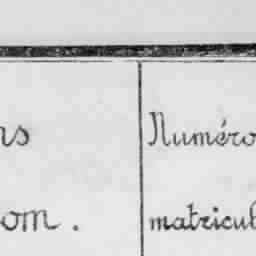 ns Numéro
om. matricul